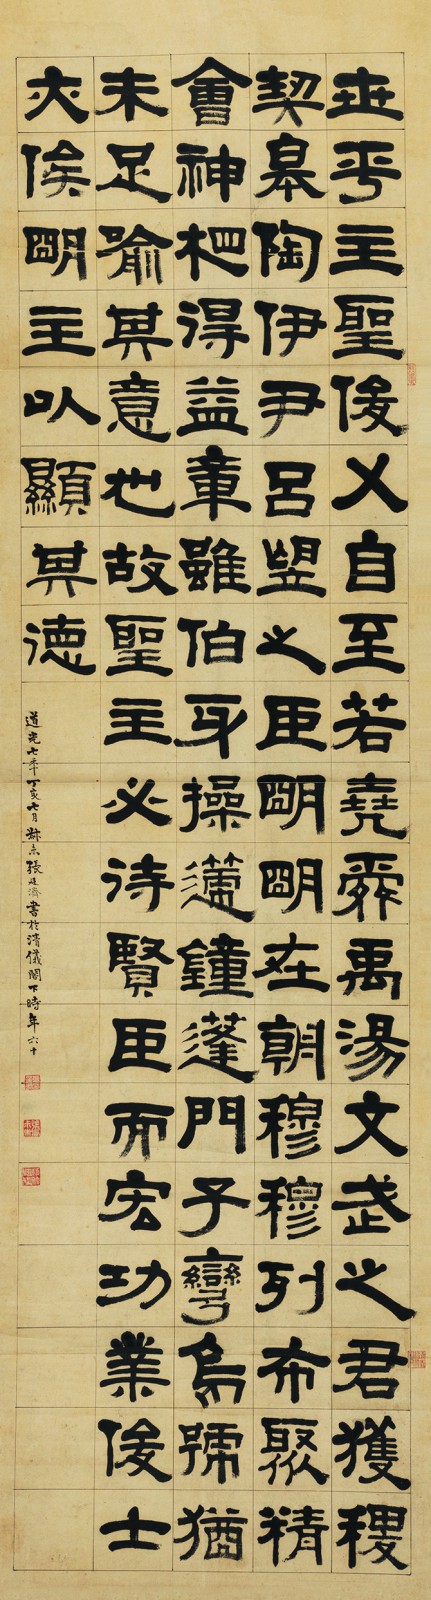 世平主聖俊乂自至若堯舜禹湯文武之君獲稷
契皋陶伊尹呂望之臣朙朙在朝穆穆列布聚精
會神相得益章雖伯牙操鐘蓬門子彎烏號猶
未足喻其意也故聖主必待賢臣而宏功業俊士
亦俟朙主以顯其德
道光七年丁亥七月叔未張廷濟書於清儀閣下時年六十